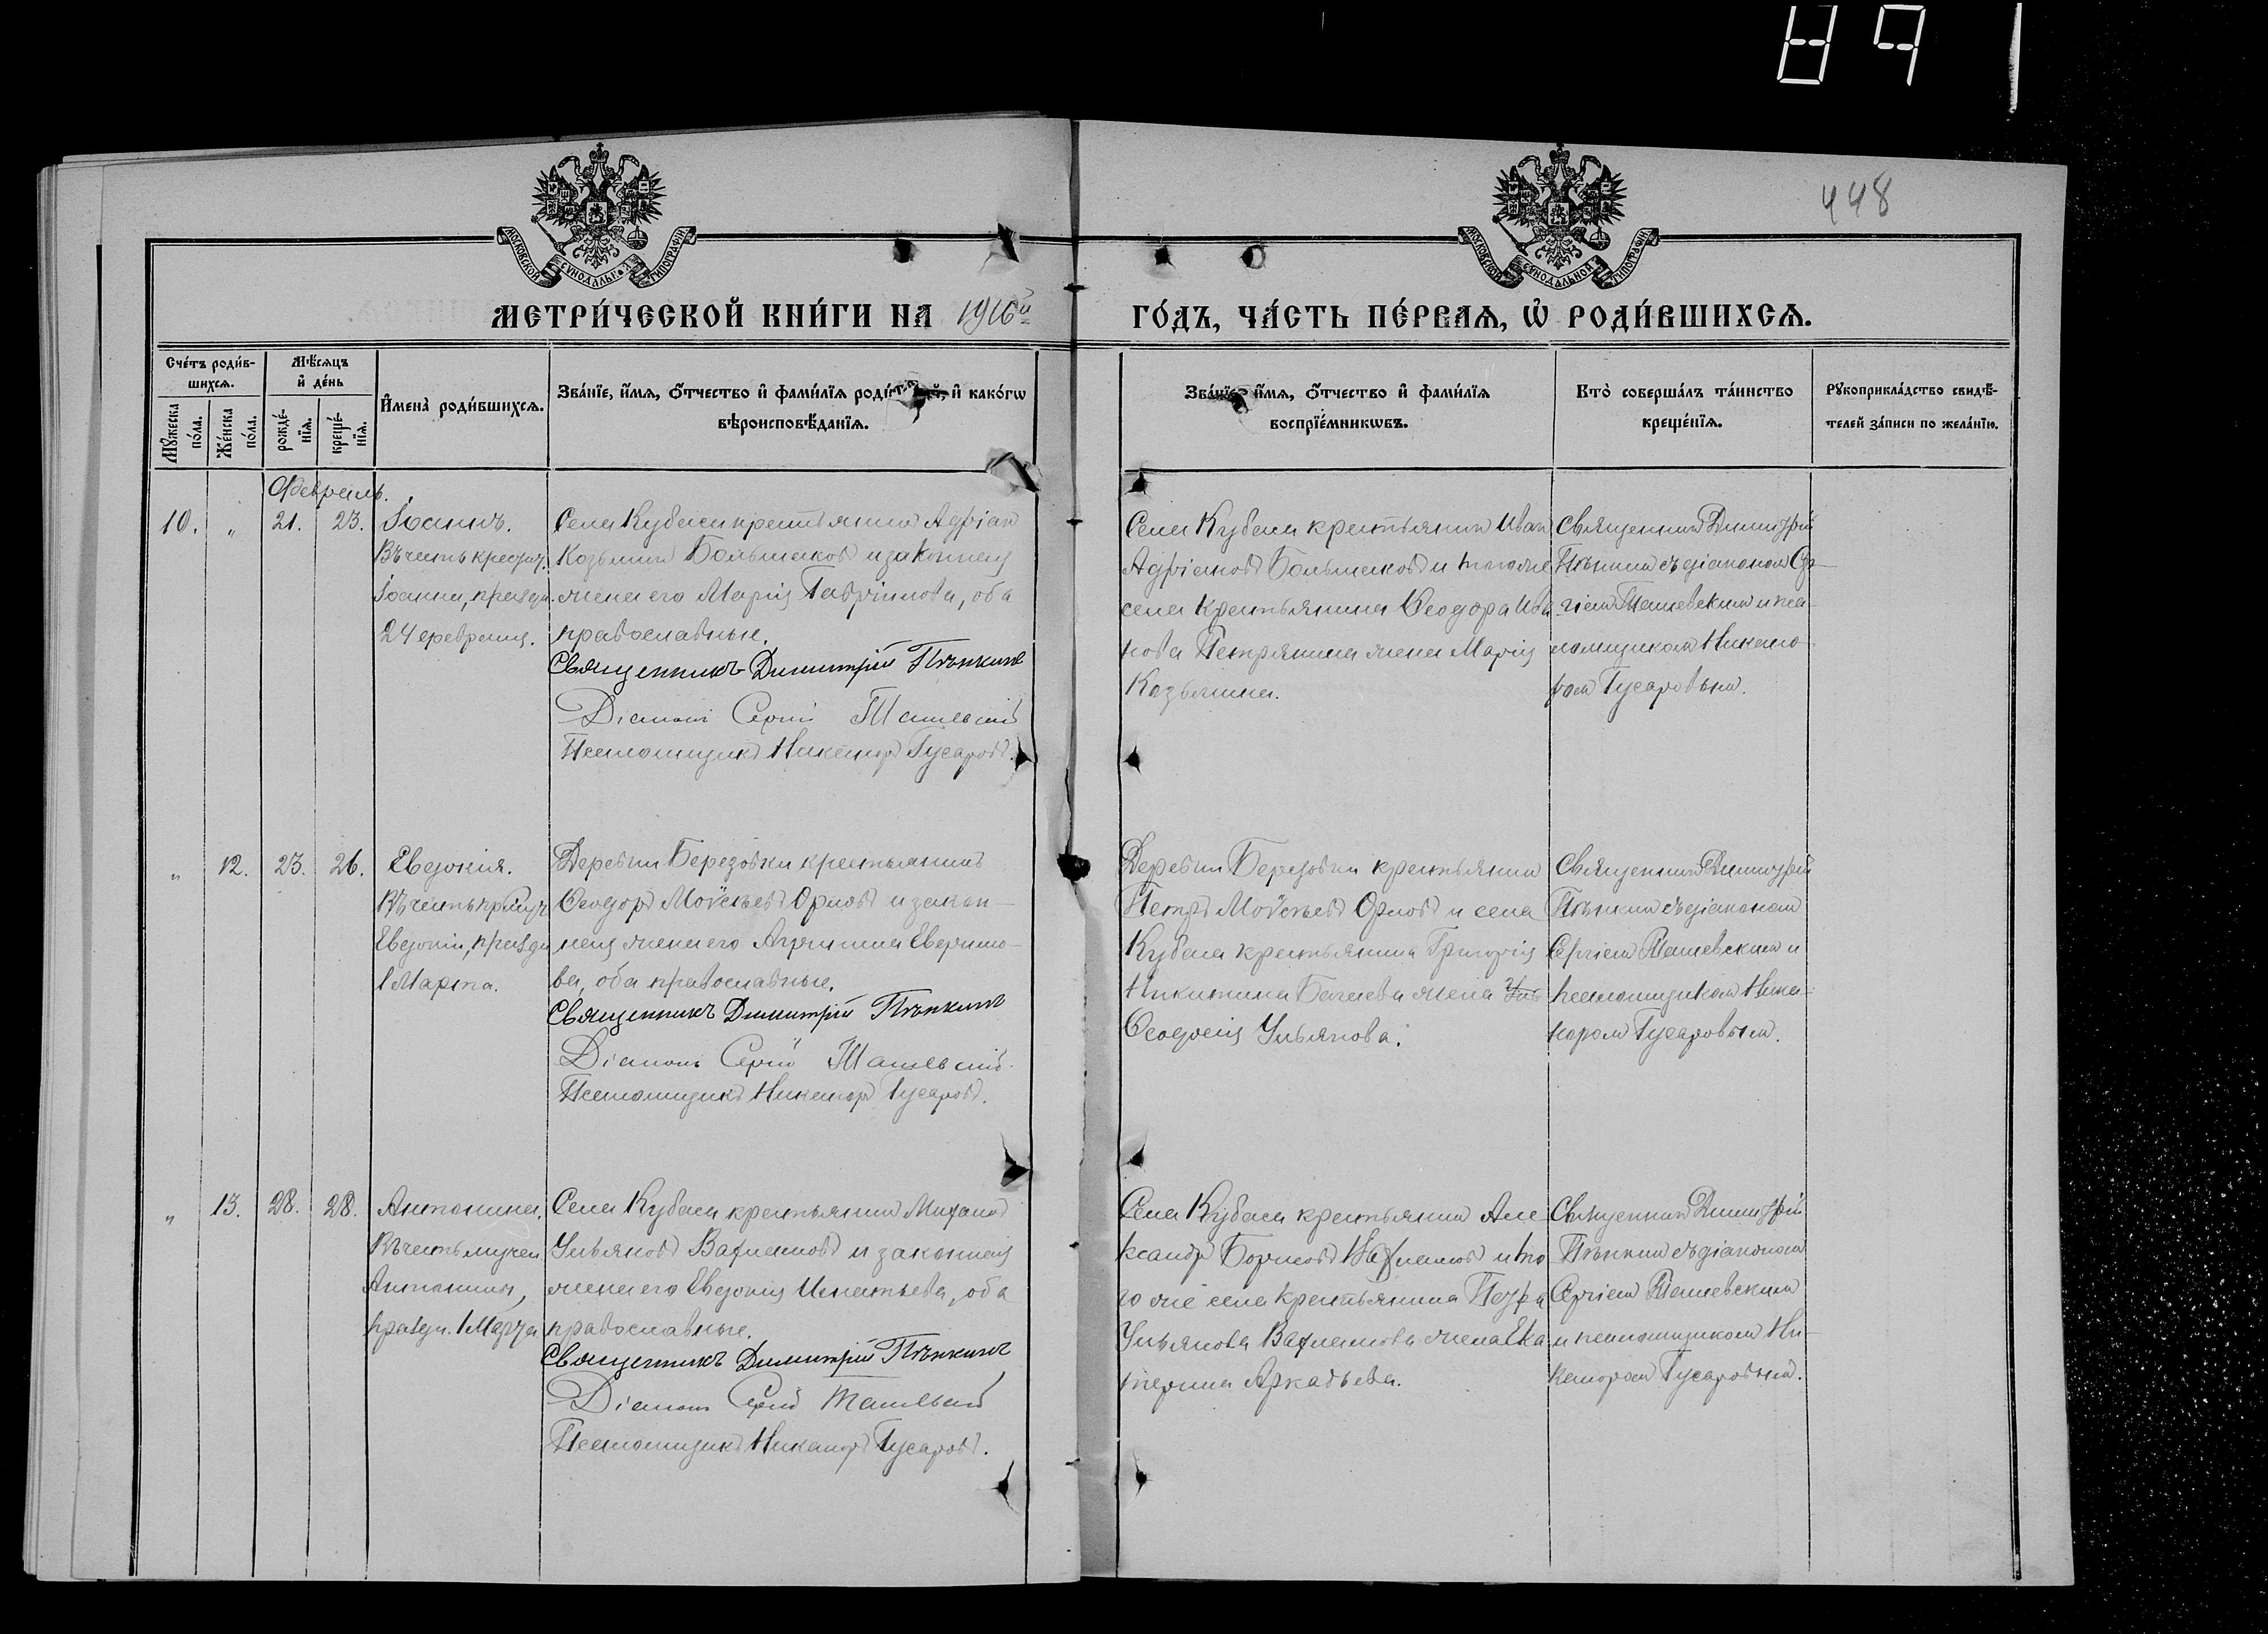 448
МОСКОВСКОЙ СѴНОДАЛЬНОЙ ТИПОГРАФІИ
МОСКОВСКОЙ СѴНОДАЛЬНОЙ ТИПОГРАФІИ
МЕТРИ́ЧЕСКОЙ КНИ́ГИ НА 1916й ГО́ДЪ, ЧА́СТЬ ПЕ́РВАЯ, Ѡ РОДИ́ВШИХСЯ.
Сче́тъ роди́в-
шихся.
Мꙋ́жеска по́ла.
Же́нска по́ла.
Мѣ́сяцъ
и҆ де́нь
рожде́-
нїя.
креще́-
нїя.
И҆мена̀ роди́вшихся.
Зва́нїе, и҆́мя, ѻ҆́тчество и҆ фами́лїя роди́телей, и҆ како́гѡ
вѣроисповѣ́данїя.
Зва́нїе, и҆́мя, ѻ҆́тчество и҆ фами́лїя
воспрїе́мникѡвъ.
Кто̀ соверша́лъ та́инство
креще́нїя.
Рꙋкоприкла́дство свидѣ́-
телей за́писи по жела́нїю.
Февраль.
10. " 21. 23. Іоаннъ.
Въ честь крестит.
Іоанна, праздн.
24 февраля.
Села Кубаса крестьянинъ Адріан
Козьминъ Большаковъ и законная
жена его Марія Гавріилова, оба
православные.
Священникъ Димитрій Пѣнкинъ
Діаконъ Сергій
Псаломщикъ Никаноръ Гусаровъ.
Села Кубаса крестьянин Иван
Адріановъ Большаковъ и того же
села крестьянина Ѳеодора Ива
нова Петрянина жена Марія
Козьмина.
Священникъ Димитрій
Пѣнкинъ съ діакономъ Сер-
гіемъ и пса-
ломщикомъ Никано-
ромъ Гусаровымъ.
" 12. 23. 26. Евдокія.
Въ честь прмуч.
Евдокіи, праздн
1 Марта.
Деревни Березовки крестьянинъ
Ѳеодоръ Моѵсеевъ Орловъ и закон-
ная жена его Агрипина Евфимо-
ва, оба православные.
Священникъ Димитрій Пѣнкинъ
Діаконъ Сергій
Псаломщикъ Никаноръ Гусаровъ.
Деревни Березовки крестьянин
Петръ Моѵсеевъ Орловъ и села
Кубаса крестьянина Григорія
Никитина жена Уль
Ѳеодосія Ульянова.
Священникъ Димитрій
Пѣнкинъ съ діакономъ
Сергіемъ и
псаломщикомъ Ника-
норомъ Гусаровымъ.
" 13. 28. 28. Антонина.
Въ честь мучен
Антонины,
праздн. 1 Марта
Села Кубаса крестьянинъ Михаилъ
Ульяновъ и законная
жена его Евдокія Игнатьева, оба
православные.
Священникъ Димитрій Пѣнкинъ
Діаконъ Сергій
Псаломщикъ Никаноръ Гусаровъ.
Села Кубаса крестьянин Але
ксандръ Борисовъ и то
го же села крестьянина Петра
Ульянова жена Ека
терина Аркадьева.
Священникъ Димитрій
Пѣнкинъ съ діакономъ
Сергіемъ
и псаломщикомъ Ни-
каноромъ Гусаровымъ.